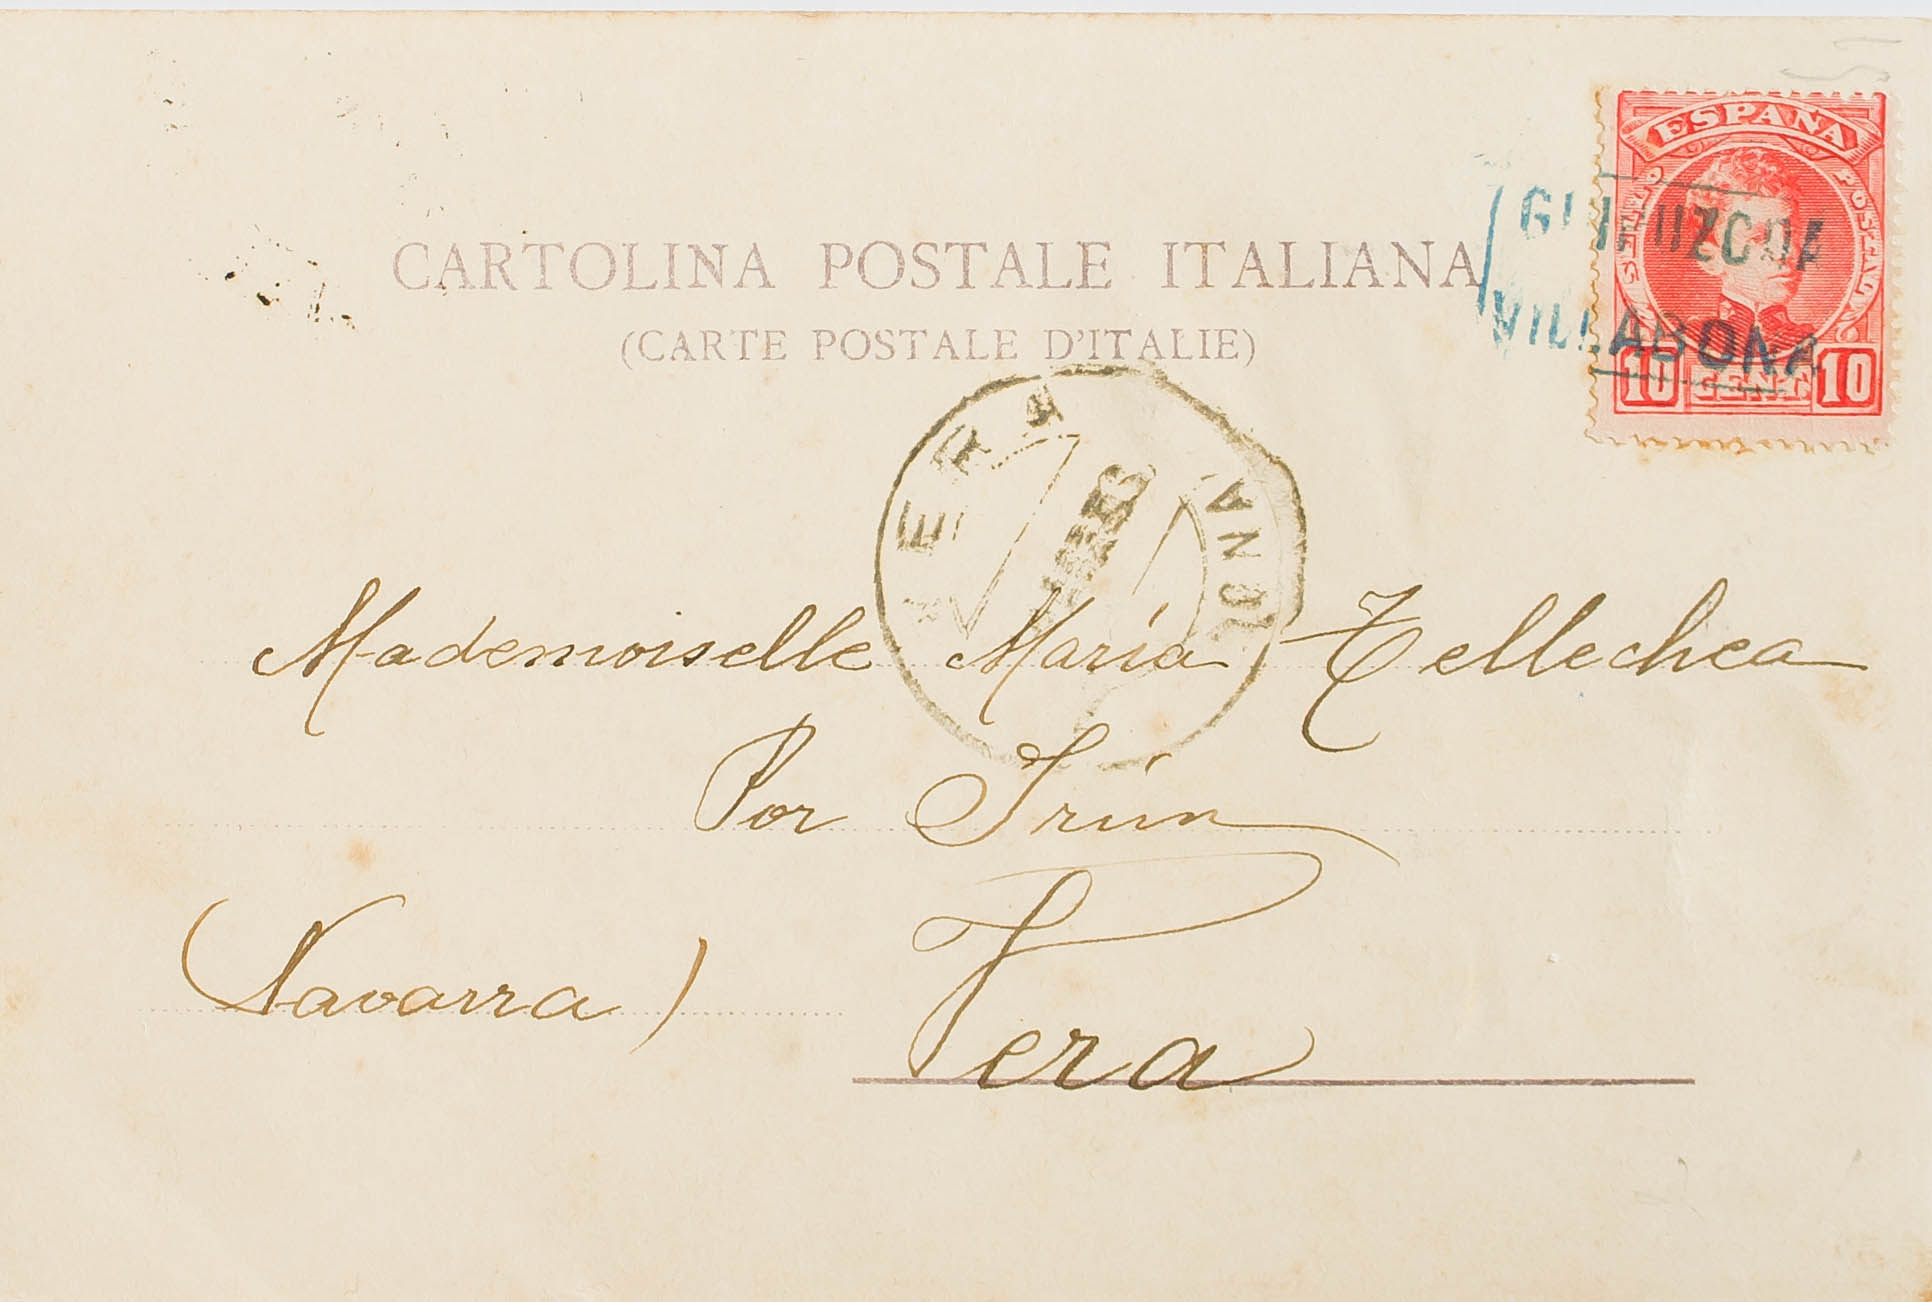 ESPAÑA
SELLO POSTAL
10 CENT. 10
GUIPUZCOA
VILLABONA
CARTOLINA POSTALE ITALIANA
(CARTE POSTALE D'ITALIE)
VERA
Mademoiselle María Tellechea
Por Irún
(Navarra)
Vera